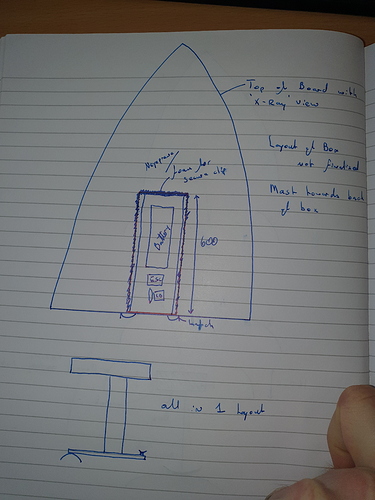 Top of Board with
'X-Ray' view
Neoprene
Foam for
Layout of Box
not finalised
Mast towards back
of box
Battery
600
latch
all in 1 layout